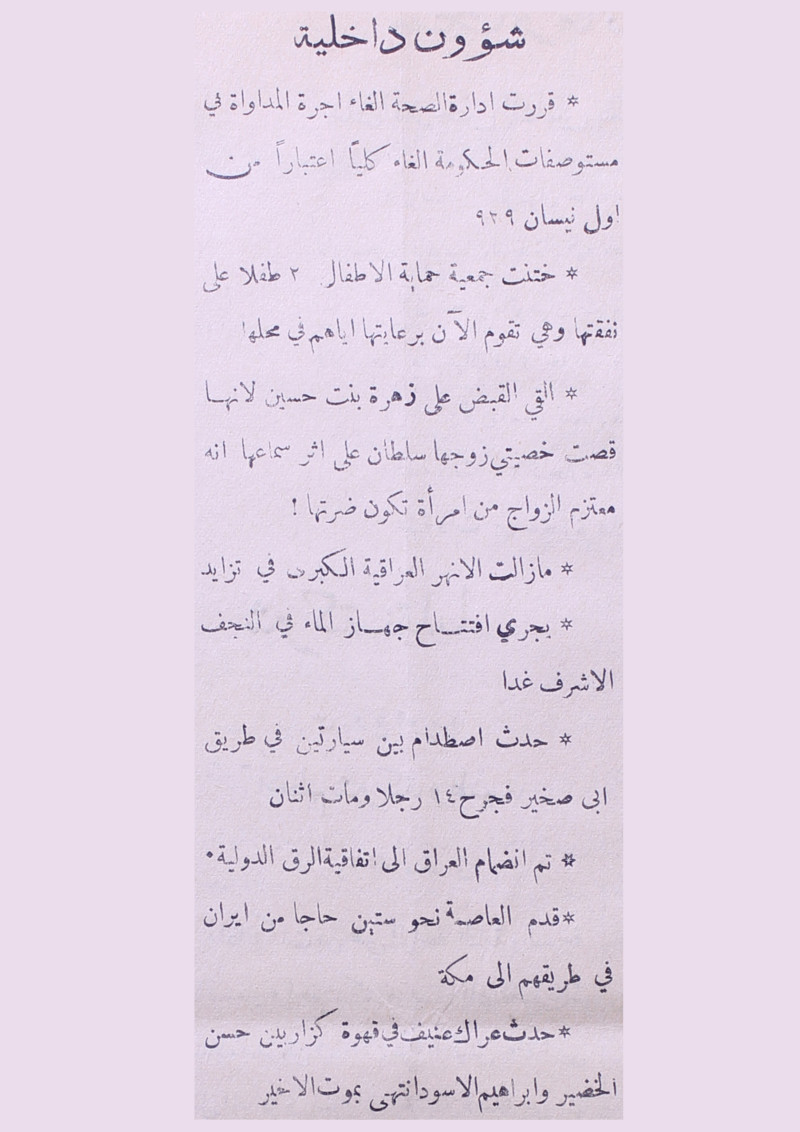 شؤون داخلية
* قررت ادارة الصحة الغاء اجرة المداواة في
مستوصفات الحكومة الغاء كليًا اعتباراً من
اول نيسان ٩٢٩
* ختنت جمعية حماية الاطفال ٢ طفلا على
نفقتها وهي تقوم الآن برعايتها اياهم في محلها
* القي القبض على زهرة بنت حسين لانهـا
قصت خصيتي زوجها سلطان على اثر سماعها انه
معتزم الزواج من امرأة تكون ضرتها !
* مازالت الانهر العراقية الكبرى في تزايد
* يجري افتتـــاح جهــاز الماء في النجف
الاشرف غدا
* حدث اصطدام بين سيارتين في طريق
ابى صخير فجرح ١٤ رجلا ومات اثنان
* تم انضمام العراق الى اتفاقية الرق الدولية .
* قدم العاصمة نحو ستين حاجا من ايران
في طريقهم الى مكة
* حدث عراك عنيف في قهوة كزار بين حسن
الخضير وابراهيم الاسود انتهى بموت الاخير